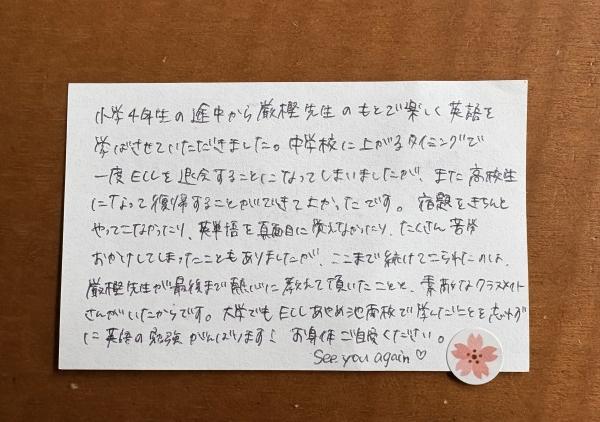 小学4年生の途中から厳樫先生のもとで楽しく英語を
学ばさせていただきました。中学校に上がるタイミングで
一度ECCを退会することになってしまいましたが、また高校生
になって復帰することができてよかったです。宿題をきちんと
やってこなかったり、英単語を真面目に覚えなかったり、たくさん苦労
おかけしてしまったこともありましたが、ここまで続けてこられたのは、
厳樫先生が最後まで熱心に教えて頂いたことと、素敵なクラスメイト
さんがいたからです。大学でもECCあやめ池南校で学んだことを忘れず
に英語の勉強がんばります! お身体ご自愛ください。
See you again♡